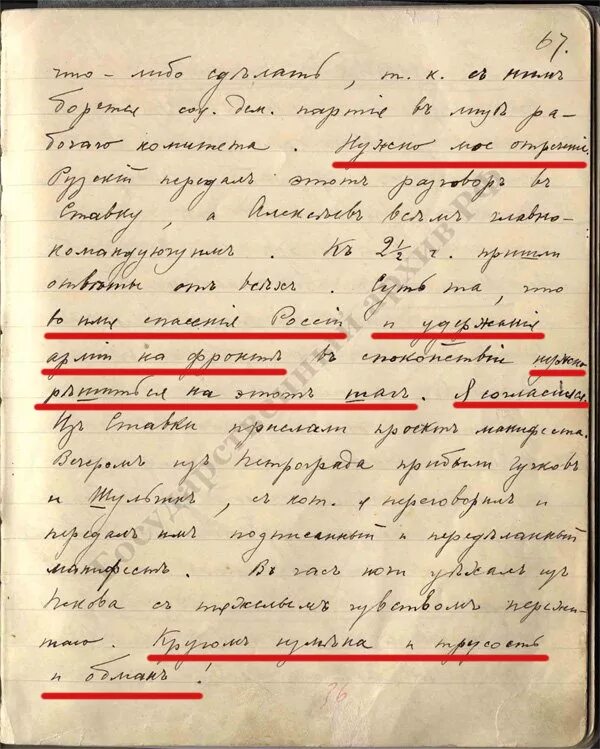 67.
что-либо сдѣлать, т. к. съ нимъ
борется соц. дем. партія въ лицѣ ра-
бочаго комитета. Нужно мое отреченіе.
Рузскій передалъ этотъ разговоръ въ
Ставку, а Алексѣевъ всѣмъ главно-
командующимъ. Къ 2½ ч. пришли
отвѣты отъ всѣхъ. Суть та, что
во имя спасенія Россіи и удержанія
арміи на фронтѣ въ спокойствіи нужно
рѣшиться на этотъ шагъ. Я согласился.
Изъ Ставки прислали проектъ манифеста.
Вечеромъ изъ Петрограда прибыли Гучковъ
и Шульгинъ, съ кот. я переговорилъ и
передалъ имъ подписанный и передѣланный
манифестъ. Въ часъ ночи уѣхалъ изъ
Пскова съ тяжелымъ чувствомъ пережи-
таго. Кругомъ измѣна и трусость
и обманъ!
36
Государственный архив РФ